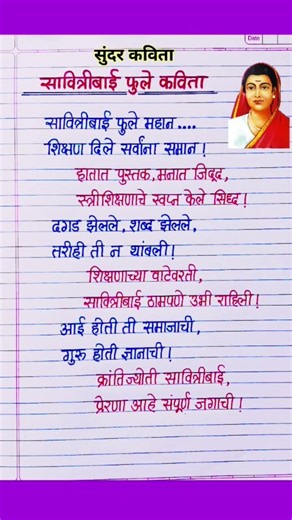 Date
सुंदर कविता
सावित्रीबाई फुले कविता
सावित्रीबाई फुले महान ....
शिक्षण दिले सर्वांना समान !
हातात पुस्तक, मनात जिद्द,
स्त्रीशिक्षणाचे स्वप्न केले सिध्द !
दगड झेलले, शब्द झेलले,
तरीही ती न थांबली !
शिक्षणाच्या वाटेवरती,
सावित्रीबाई ठामपणे उभी राहिली !
आई होती ती समाजाची,
गुरू होती ज्ञानाची !
क्रांतिज्योती सावित्रीबाई,
प्रेरणा आहे संपूर्ण जगाची !